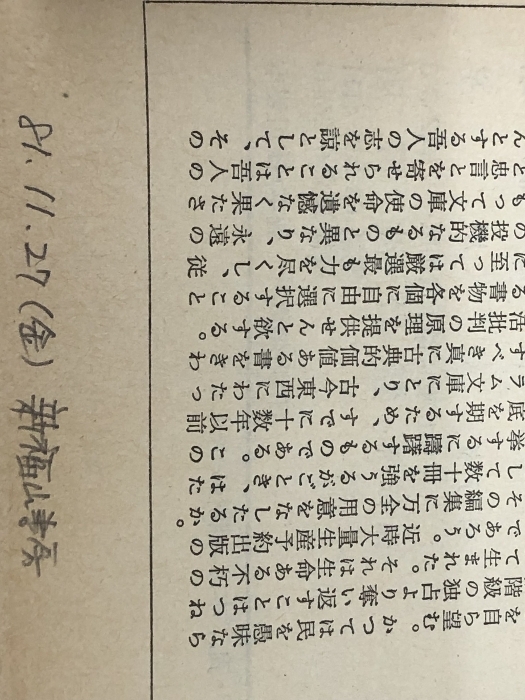 を自ら望む。かつては民を愚昧なら
階級の独占より奪い返すことはつね
て生まれた。それは生命ある不朽の
であろう。近時大量生産予約出版の
その編集に万全の用意をなしたるか。
して数十冊を強うるがごとき、はた
挙するに躊躇するものである。この
底を期するため、すでに十数年以前
ラム文庫にとり、古今東西にわたっ
すべき真に古典的価値ある書をきわ
活批判の原理を提供せんと欲する。
る書物を各個に自由に選択すること
に至っては厳選最も力を尽くし、従
の投機的なるものと異なり、永遠の
もって文庫の使命を遺憾なく果たさ
と忠言とを寄せられることは吾人の
んとする吾人の志を諒として、その
81.11.27(金) 新福山